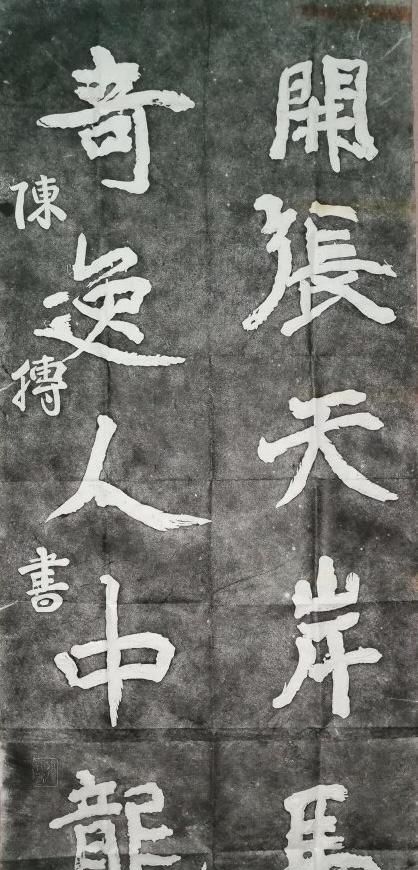 開張天岸馬
奇逸人中龍
陳摶書